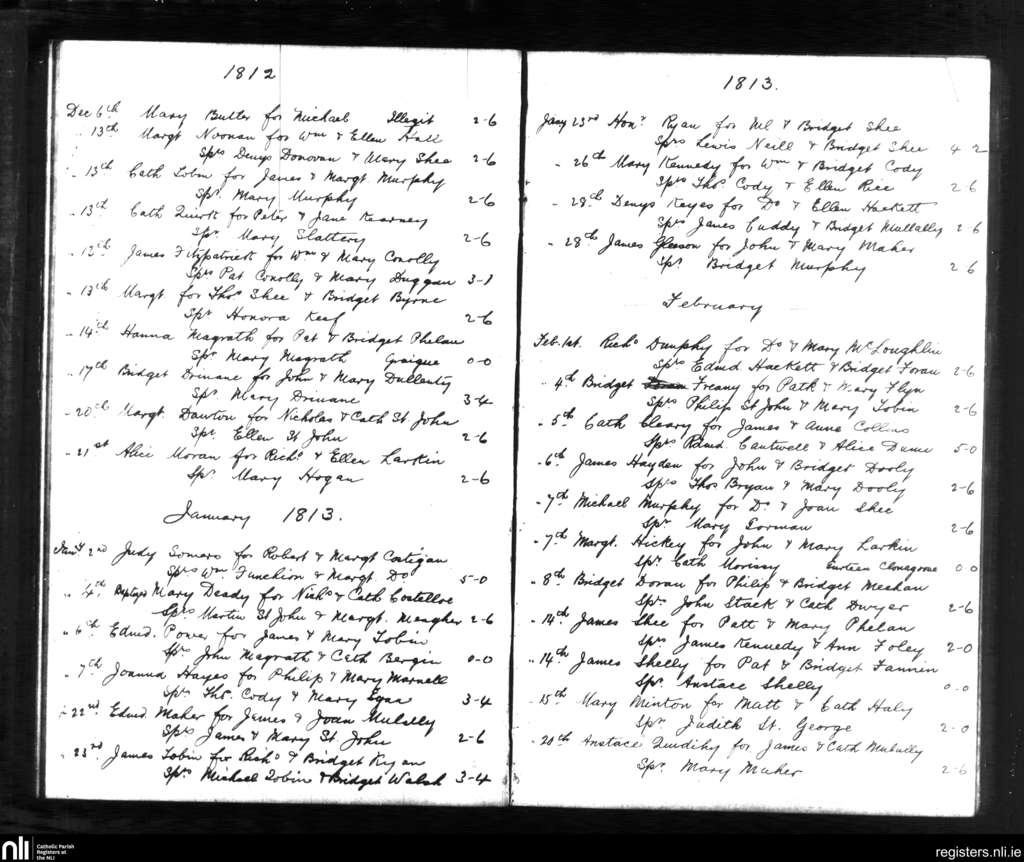 1812
Dec 6th Mary Butler for Michael Illegit 2-6
" 13th Margt Noonan for Wm & Ellen Hall
Sprs Denys Donovan & Mary Shea 2-6
" 13th Cath Tobin for James & Margt. Murphy
Spr. Mary Murphy 2-6
" 13th Cath Quirk for Peter & Jane Kearney
Spr. Mary Slattery 2-6
" 13th James Fitzpatrick for Wm & Mary Conolly
Sprs Pat Conolly & Mary Duggan 3-1
" 13th Margt for Thos Shee & Bridget Byrne
Spr Honora Keef 2-6
" 14th Hanna Magrath for Pat & Bridget Phelan
Spr Mary Magrath Graigue 0-0
" 17th Bridget Drinane for John & Mary Dullanty
Spr. Mary Drinane 3-4
" 20th Margt. Dawton for Nicholas & Cath St John
Spr. Ellen St John 2-6
" 21st Alice Moran for Richd & Ellen Larkin
Spr. Mary Hogan 2-6
January 1813.
Jany 2nd Judy Somars for Robert & Margt Costigan
Sprs Wm. Funchion & Margt Do 5-0
" 4th Baptized Mary Deady for Nichs & Cath Costelloe
Sprs Martin St John & Margt. Meagher 2-6
" 6th Edmd. Power for James & Mary Tobin
Spr. John Magrath & Cath Bergin 0-0
" 7th Joanna Hayes for Philip & Mary Marnell
Spr. Thos. Cody & Mary Egan 3-4
" 22nd Edmd. Maher for James & Joan Mulally
Sprs James & Mary St. John 2-6
" 23rd James Tobin for Richd & Bridget Ryan
Sprs Michael Tobin & Bridget Walsh 3-4
1813.
Jany 23rd Honr. Ryan for Ml & Bridget Shee
Sprs Lewis Neill & Bridget Shee 4 2
" 26th Mary Kennedy for Wm & Bridget Cody
Sprs Thos. Cody & Ellen Rice 2 6
" 28th Denys Keyes for Do & Ellen Hackett
Sprs James Cuddy & Bridget Mullally 2 6
" 28th James Gleeson for John & Mary Maher
Spr. Bridget Murphy 2 6
February
Feb. 1st. Richd Dunphy for Do & Mary McLoughlin
Sprs Edmd Hackett & Bridget Foran 2-6
" 4th Bridget Freany for Patk & Mary Flyn
Sprs Philip St John & Mary Tobin 2-6
" 5th Cath Cleary for James & Anne Collins
Sprs Redmd. Cantwell & Alice Dunne 5-0
" 6th James Hayden for John & Bridget Dooly
Sprs Thos Bryan & Mary Dooly 2-6
" 7th Michael Murphy for Do. & Joan Shee
Spr. Mary Gorman 2-6
" 7th Margt. Hickey for John & Mary Larkin
Spr. Cath Morissy Clonagoose 0 0
" 8th Bridget Doran for Philip & Bridget Meehan
Spr. John Stack & Cath Dwyer 2-6
" 14th James Shee for Patt & Mary Phelan
Sprs James Kennedy & Ann Foley 2-0
" 14th James Shelly for Pat & Bridget Fannin
Spr. Anstace Shelly 0-0
" 15th Mary Minton for Matt & Cath Haly
Spr Judith St. George 2-0
" 20th Anstace Quidihy for James & Cath Mulully
Spr. Mary Maher 2-6
nli
Catholic Parish
Registers at
the NLI
registers.nli.ie